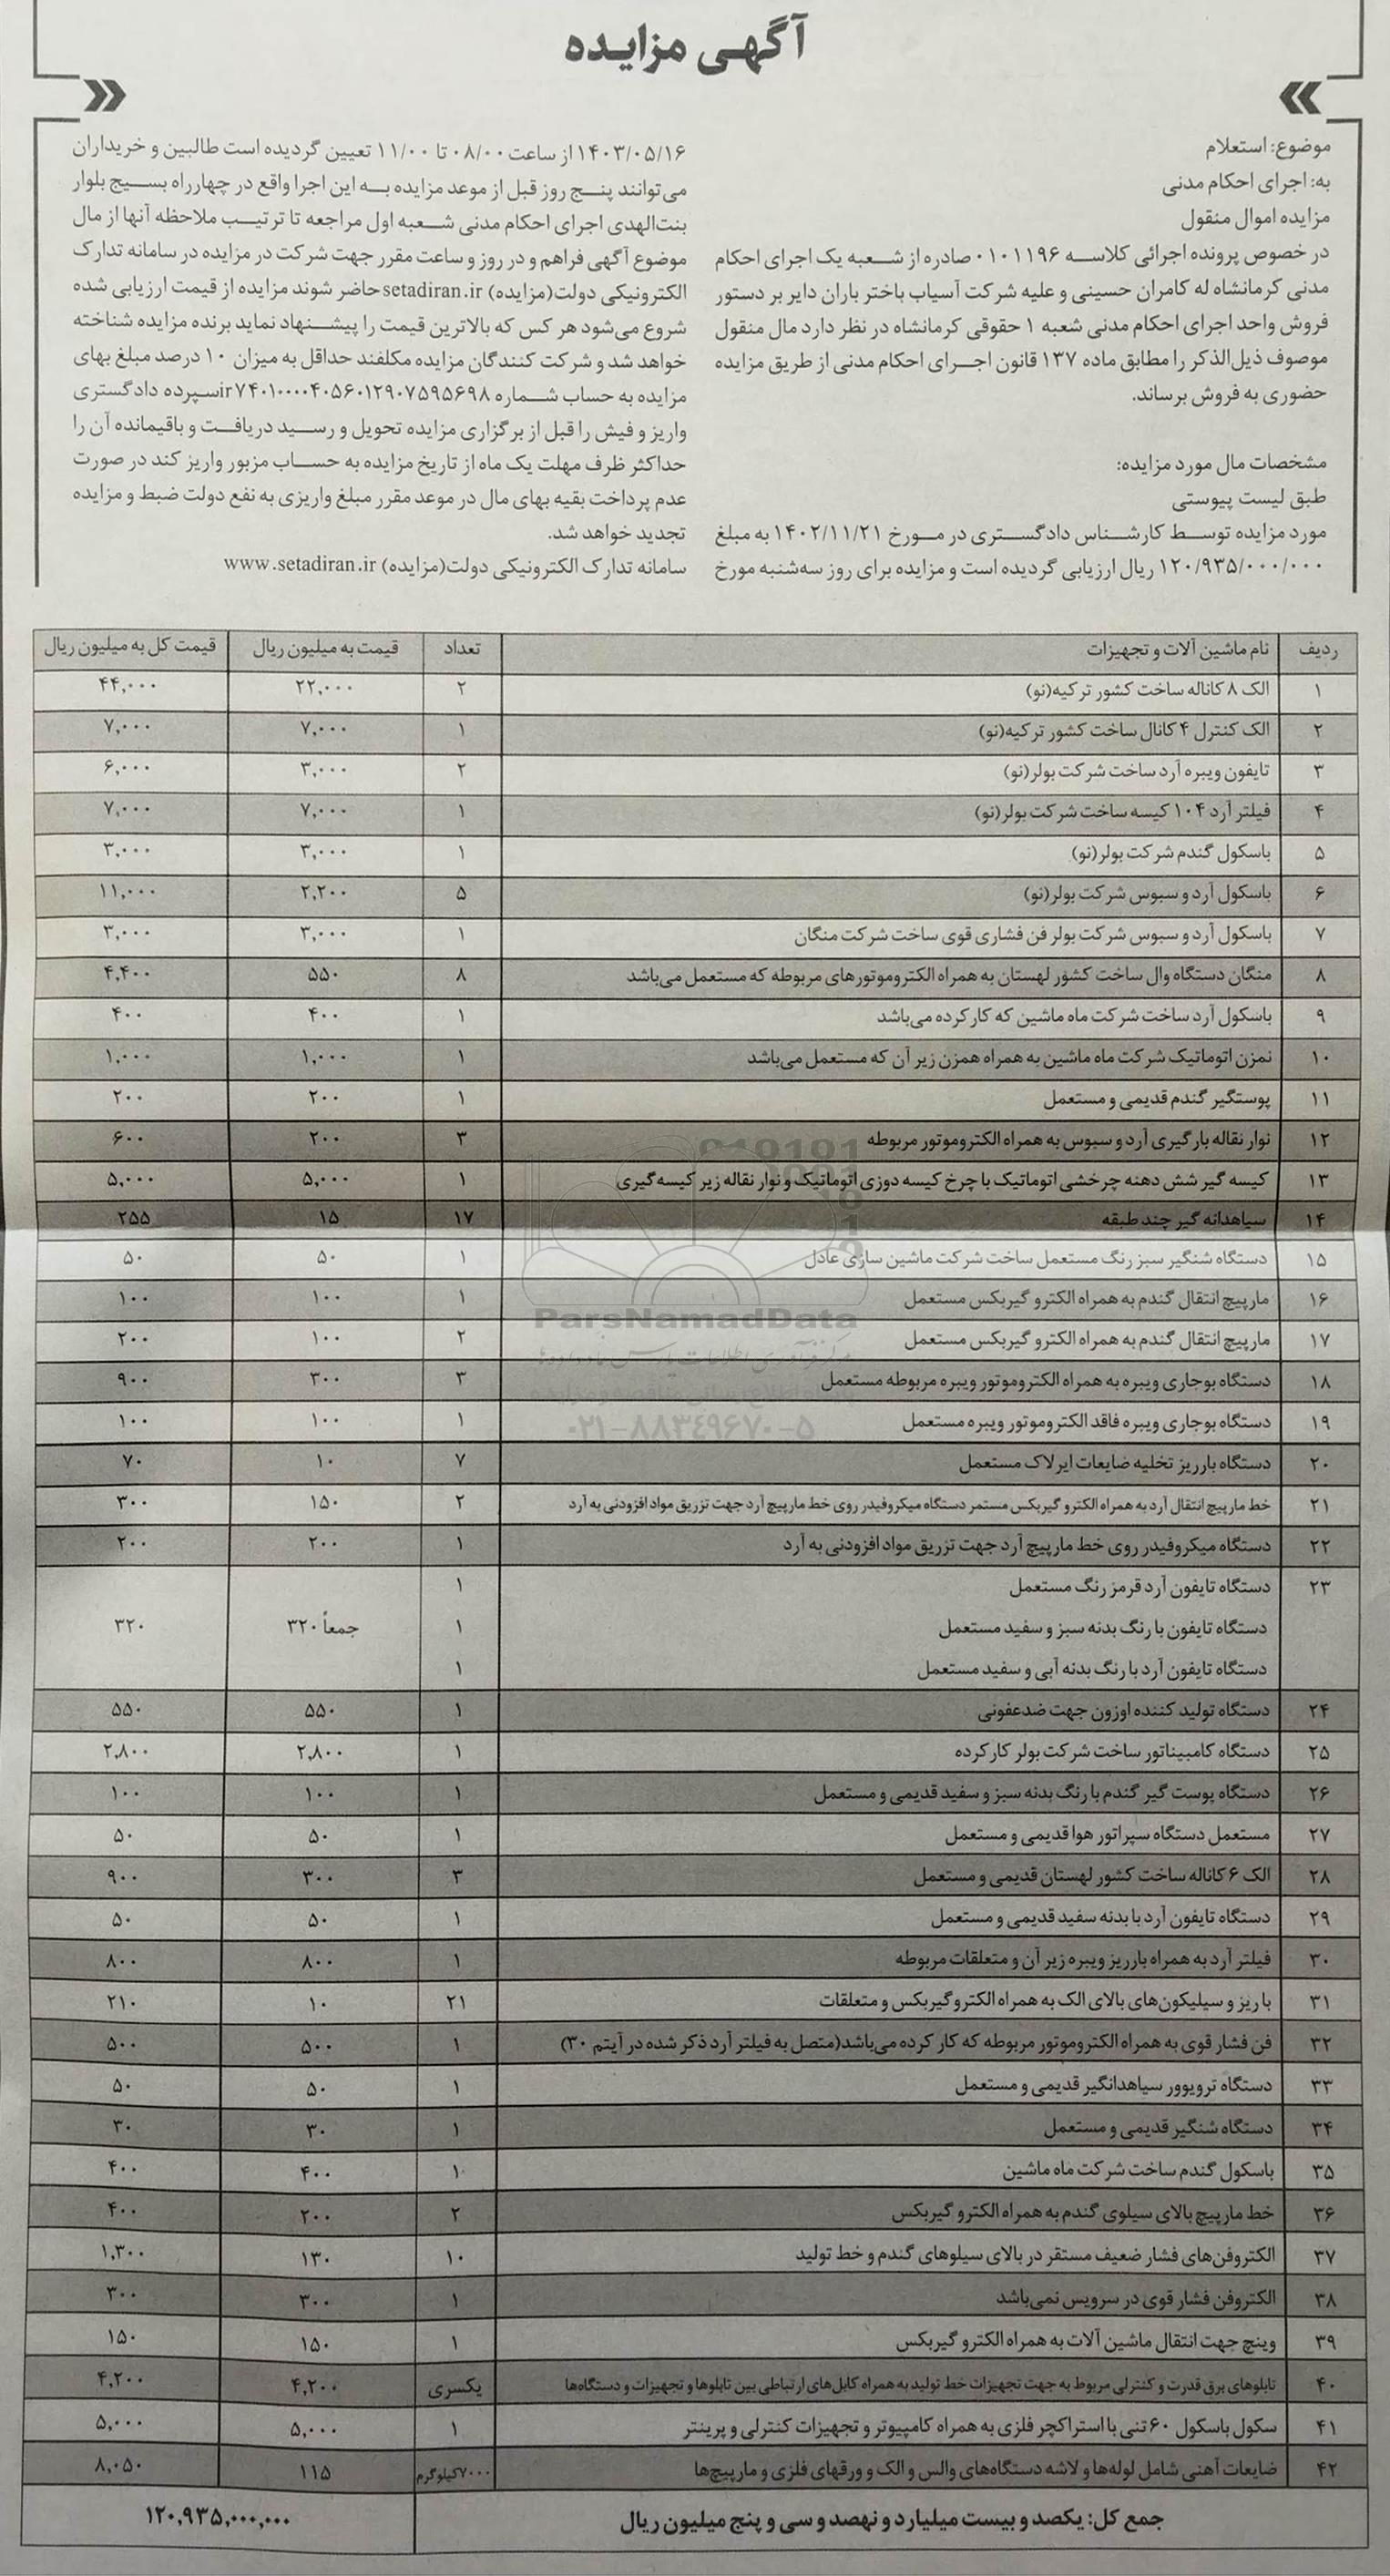 آگهی مزایده
موضوع: استعلام
به: اجرای احکام مدنی
مزایده اموال منقول
در خصوص پرونده اجرائی کلاسه ۰۱۰۱۱۹۶ صادره از شعبه یک اجرای احکام
مدنی کرمانشاه له کامران حسینی و علیه شرکت آسیاب باختر باران دایر بر دستور
فروش واحد اجرای احکام مدنی شعبه ۱ حقوقی کرمانشاه در نظر دارد مال منقول
موصوف ذیل‌الذکر را مطابق ماده ۱۳۷ قانون اجرای احکام مدنی از طریق مزایده
حضوری به فروش برساند.
مشخصات مال مورد مزایده:
طبق لیست پیوستی
مورد مزایده توسط کارشناس دادگستری در مورخ ۱۴۰۲/۱۱/۲۱ به مبلغ
۱۲۰/۹۳۵/۰۰۰/۰۰۰ ریال ارزیابی گردیده است و مزایده برای روز سه‌شنبه مورخ
۱۴۰۳/۰۵/۱۶ از ساعت ۰۸/۰۰ تا ۱۱/۰۰ تعیین گردیده است طالبین و خریداران
می‌توانند پنج روز قبل از موعد مزایده به این اجرا واقع در چهارراه بسیج بلوار
بنت‌الهدی اجرای احکام مدنی شعبه اول مراجعه تا ترتیب ملاحظه آنها از مال
موضوع آگهی فراهم و در روز و ساعت مقرر جهت شرکت در مزایده در سامانه تدارک
الکترونیکی دولت(مزایده) setadiran.ir حاضر شوند مزایده از قیمت ارزیابی شده
شروع می‌شود هر کس که بالاترین قیمت را پیشنهاد نماید برنده مزایده شناخته
خواهد شد و شرکت کنندگان مزایده مکلفند حداقل به میزان ۱۰ درصد مبلغ بهای
مزایده به حساب شماره ir۷۴۰۱۰۰۰۰۴۰۵۶۰۱۲۹۰۷۵۹۵۶۹۸ سپرده دادگستری
واریز و فیش را قبل از برگزاری مزایده تحویل و رسید دریافت و باقیمانده آن را
حداکثر ظرف مهلت یک ماه از تاریخ مزایده به حساب مزبور واریز کند در صورت
عدم پرداخت بقیه بهای مال در موعد مقرر مبلغ واریزی به نفع دولت ضبط و مزایده
تجدید خواهد شد.
سامانه تدارک الکترونیکی دولت(مزایده) www.setadiran.ir
ردیف نام ماشین آلات و تجهیزات تعداد قیمت به میلیون ریال قیمت کل به میلیون ریال
۱ الک ۸ کاناله ساخت کشور ترکیه(نو) ۲ ۲۲,۰۰۰ ۴۴,۰۰۰
۲ الک کنترل ۴ کانال ساخت کشور ترکیه(نو) ۱ ۷,۰۰۰ ۷,۰۰۰
۳ تایفون ویبره آرد ساخت شرکت بولر(نو) ۲ ۳,۰۰۰ ۶,۰۰۰
۴ فیلتر آرد ۱۰۴ کیسه ساخت شرکت بولر(نو) ۱ ۷,۰۰۰ ۷,۰۰۰
۵ باسکول گندم شرکت بولر(نو) ۱ ۳,۰۰۰ ۳,۰۰۰
۶ باسکول آرد و سبوس شرکت بولر(نو) ۵ ۲,۲۰۰ ۱۱,۰۰۰
۷ باسکول آرد و سبوس شرکت بولر فن فشاری قوی ساخت شرکت منگان ۱ ۳,۰۰۰ ۳,۰۰۰
۸ منگان دستگاه وال ساخت کشور لهستان به همراه الکتروموتورهای مربوطه که مستعمل می‌باشد ۸ ۵۵۰ ۴,۴۰۰
۹ باسکول آرد ساخت شرکت ماه ماشین که کارکرده می‌باشد ۱ ۴۰۰ ۴۰۰
۱۰ نمزن اتوماتیک شرکت ماه ماشین به همراه همزن زیر آن که مستعمل می‌باشد ۱ ۱,۰۰۰ ۱,۰۰۰
۱۱ پوستگیر گندم قدیمی و مستعمل ۱ ۲۰۰ ۲۰۰
۱۲ نوار نقاله بارگیری آرد و سبوس به همراه الکتروموتور مربوطه ۳ ۲۰۰ ۶۰۰
۱۳ کیسه گیر شش دهنه چرخشی اتوماتیک با چرخ کیسه دوزی اتوماتیک و نوار نقاله زیر کیسه گیری ۱ ۵,۰۰۰ ۵,۰۰۰
۱۴ سیاهدانه گیر چند طبقه ۱۷ ۱۵ ۲۵۵
۱۵ دستگاه شنگیر سبز رنگ مستعمل ساخت شرکت ماشین سازی عادل ۱ ۵۰ ۵۰
۱۶ مارپیچ انتقال گندم به همراه الکترو گیربکس مستعمل ۱ ۱۰۰ ۱۰۰
۱۷ مارپیچ انتقال گندم به همراه الکترو گیربکس مستعمل ۲ ۱۰۰ ۲۰۰
۱۸ دستگاه بوجاری ویبره به همراه الکتروموتور ویبره مربوطه مستعمل ۳ ۳۰۰ ۹۰۰
۱۹ دستگاه بوجاری ویبره فاقد الکتروموتور ویبره مستعمل ۱ ۱۰۰ ۱۰۰
۲۰ دستگاه بارریز تخلیه ضایعات ایرلاک مستعمل ۷ ۱۰ ۷۰
۲۱ خط مارپیچ انتقال آرد به همراه الکترو گیربکس مستمر دستگاه میکروفیدر روی خط مارپیچ آرد جهت تزریق مواد افزودنی به آرد ۲ ۱۵۰ ۳۰۰
۲۲ دستگاه میکروفیدر روی خط مارپیچ آرد جهت تزریق مواد افزودنی به آرد ۱ ۲۰۰ ۲۰۰
۲۳ دستگاه تایفون آرد قرمز رنگ مستعمل ۱
دستگاه تایفون با رنگ بدنه سبز و سفید مستعمل ۱ جمعاً ۳۲۰ ۳۲۰
دستگاه تایفون آرد با رنگ بدنه آبی و سفید مستعمل ۱
۲۴ دستگاه تولید کننده اوزون جهت ضدعفونی ۱ ۵۵۰ ۵۵۰
۲۵ دستگاه کامبیناتور ساخت شرکت بولر کارکرده ۱ ۲,۸۰۰ ۲,۸۰۰
۲۶ دستگاه پوست گیر گندم با رنگ بدنه سبز و سفید قدیمی و مستعمل ۱ ۱۰۰ ۱۰۰
۲۷ مستعمل دستگاه سپراتور هوا قدیمی و مستعمل ۱ ۵۰ ۵۰
۲۸ الک ۶ کاناله ساخت کشور لهستان قدیمی و مستعمل ۳ ۳۰۰ ۹۰۰
۲۹ دستگاه تایفون آرد با بدنه سفید قدیمی و مستعمل ۱ ۵۰ ۵۰
۳۰ فیلتر آرد به همراه بارریز ویبره زیر آن و متعلقات مربوطه ۱ ۸۰۰ ۸۰۰
۳۱ باریز و سیلیکون‌های بالای الک به همراه الکتروگیربکس و متعلقات ۲۱ ۱۰ ۲۱۰
۳۲ فن فشار قوی به همراه الکتروموتور مربوطه که کار کرده می‌باشد(متصل به فیلتر آرد ذکر شده در آیتم ۳۰) ۱ ۵۰۰ ۵۰۰
۳۳ دستگاه تریوور سیاهدانگیر قدیمی و مستعمل ۱ ۵۰ ۵۰
۳۴ دستگاه شنگیر قدیمی و مستعمل ۱ ۳۰ ۳۰
۳۵ باسکول گندم ساخت شرکت ماه ماشین ۱ ۴۰۰ ۴۰۰
۳۶ خط مارپیچ بالای سیلوی گندم به همراه الکترو گیربکس ۲ ۲۰۰ ۴۰۰
۳۷ الکتروفن‌های فشار ضعیف مستقر در بالای سیلوهای گندم و خط تولید ۱۰ ۱۳۰ ۱,۳۰۰
۳۸ الکتروفن فشار قوی در سرویس نمی‌باشد ۱ ۳۰۰ ۳۰۰
۳۹ وینچ جهت انتقال ماشین آلات به همراه الکترو گیربکس ۱ ۱۵۰ ۱۵۰
۴۰ تابلوهای برق قدرت و کنترلی مربوط به جهت تجهیزات خط تولید به همراه کابل‌های ارتباطی بین تابلوها و تجهیزات و دستگاه‌ها یکسری ۴,۲۰۰ ۴,۲۰۰
۴۱ سکول باسکول ۶۰ تنی با استراکچر فلزی به همراه کامپیوتر و تجهیزات کنترلی و پرینتر ۱ ۵,۰۰۰ ۵,۰۰۰
۴۲ ضایعات آهنی شامل لوله‌ها و لاشه دستگاه‌های والس و الک و ورقهای فلزی و مارپیچ‌ها ۷۰۰۰کیلوگرم ۱۱۵ ۸,۰۵۰
جمع کل: یکصد و بیست میلیارد و نهصد و سی و پنج میلیون ریال ۱۲۰,۹۳۵,۰۰۰,۰۰۰
ParsNamadData
۰۲۱-۸۸۳۴۹۶۷۰-۵